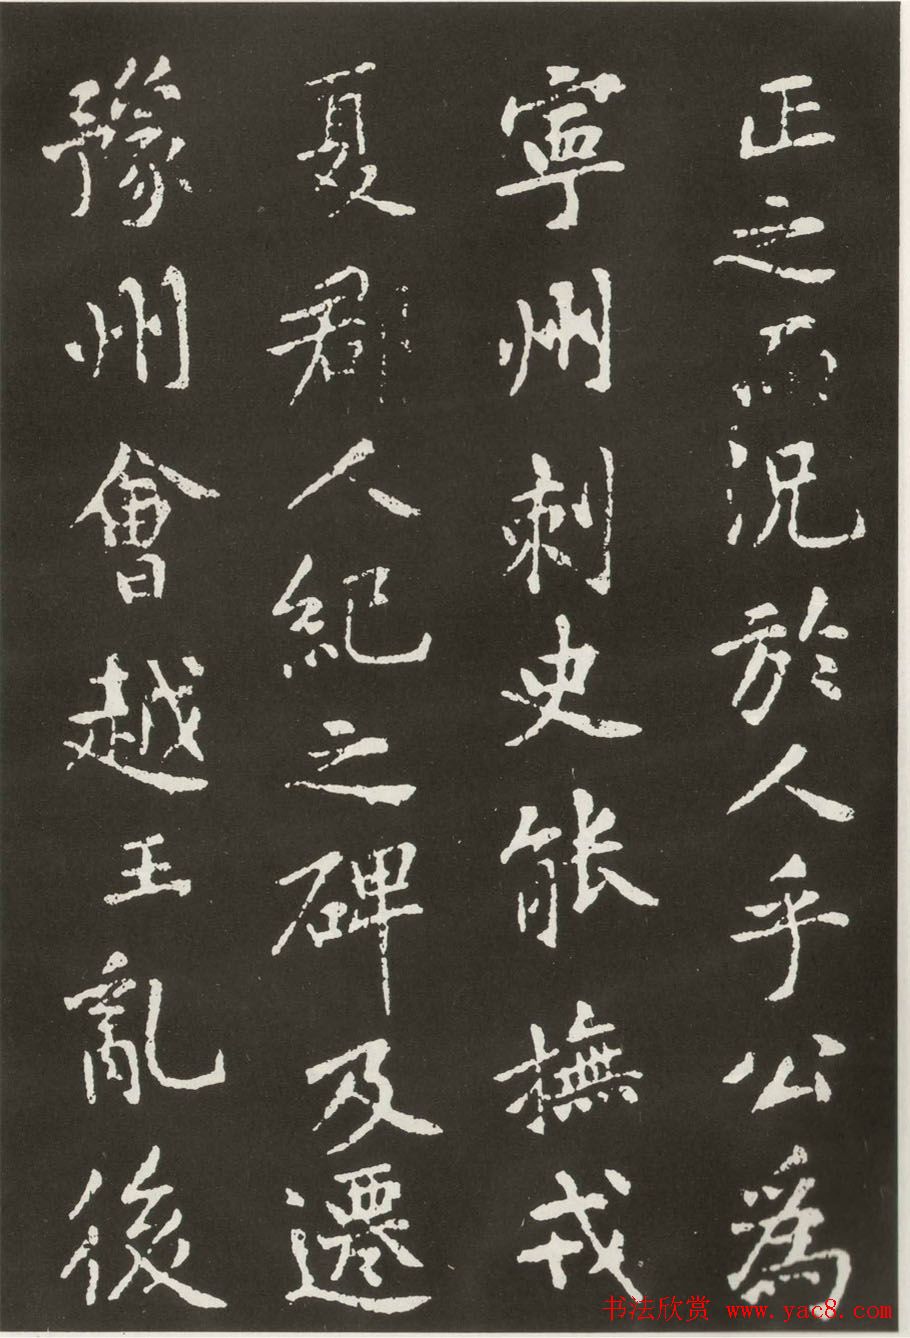 正之而況於人乎公為
寧州刺史能撫戎
夏郡人紀之碑及遷
豫州會越王亂後
书法欣赏 www.yac8.com